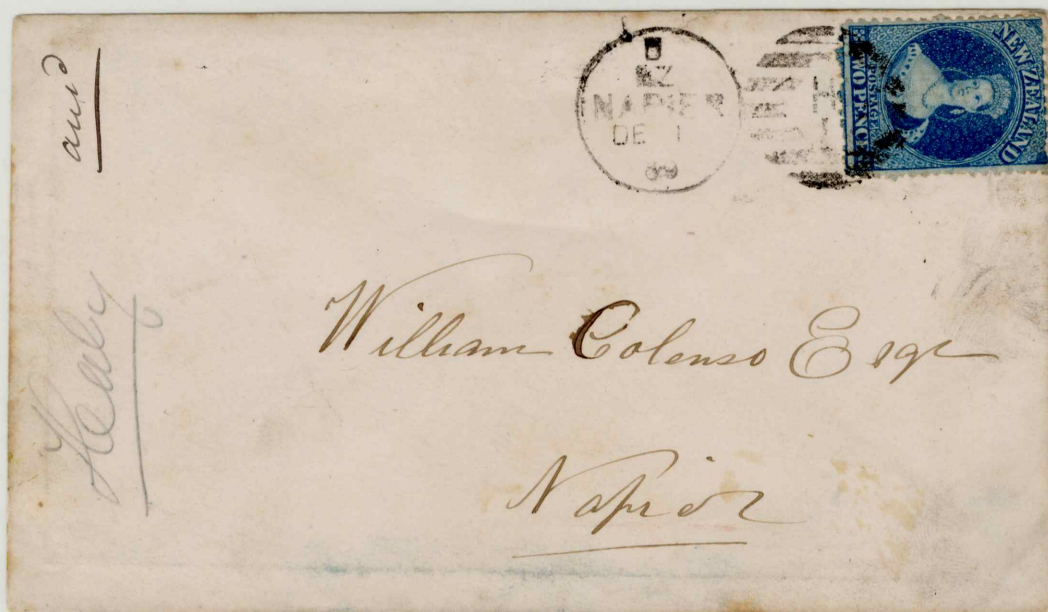 and
NAPIER
DE 1
NEW ZEALAND
POSTAGE
TWO PENCE
William Colenso Esqr
Napier